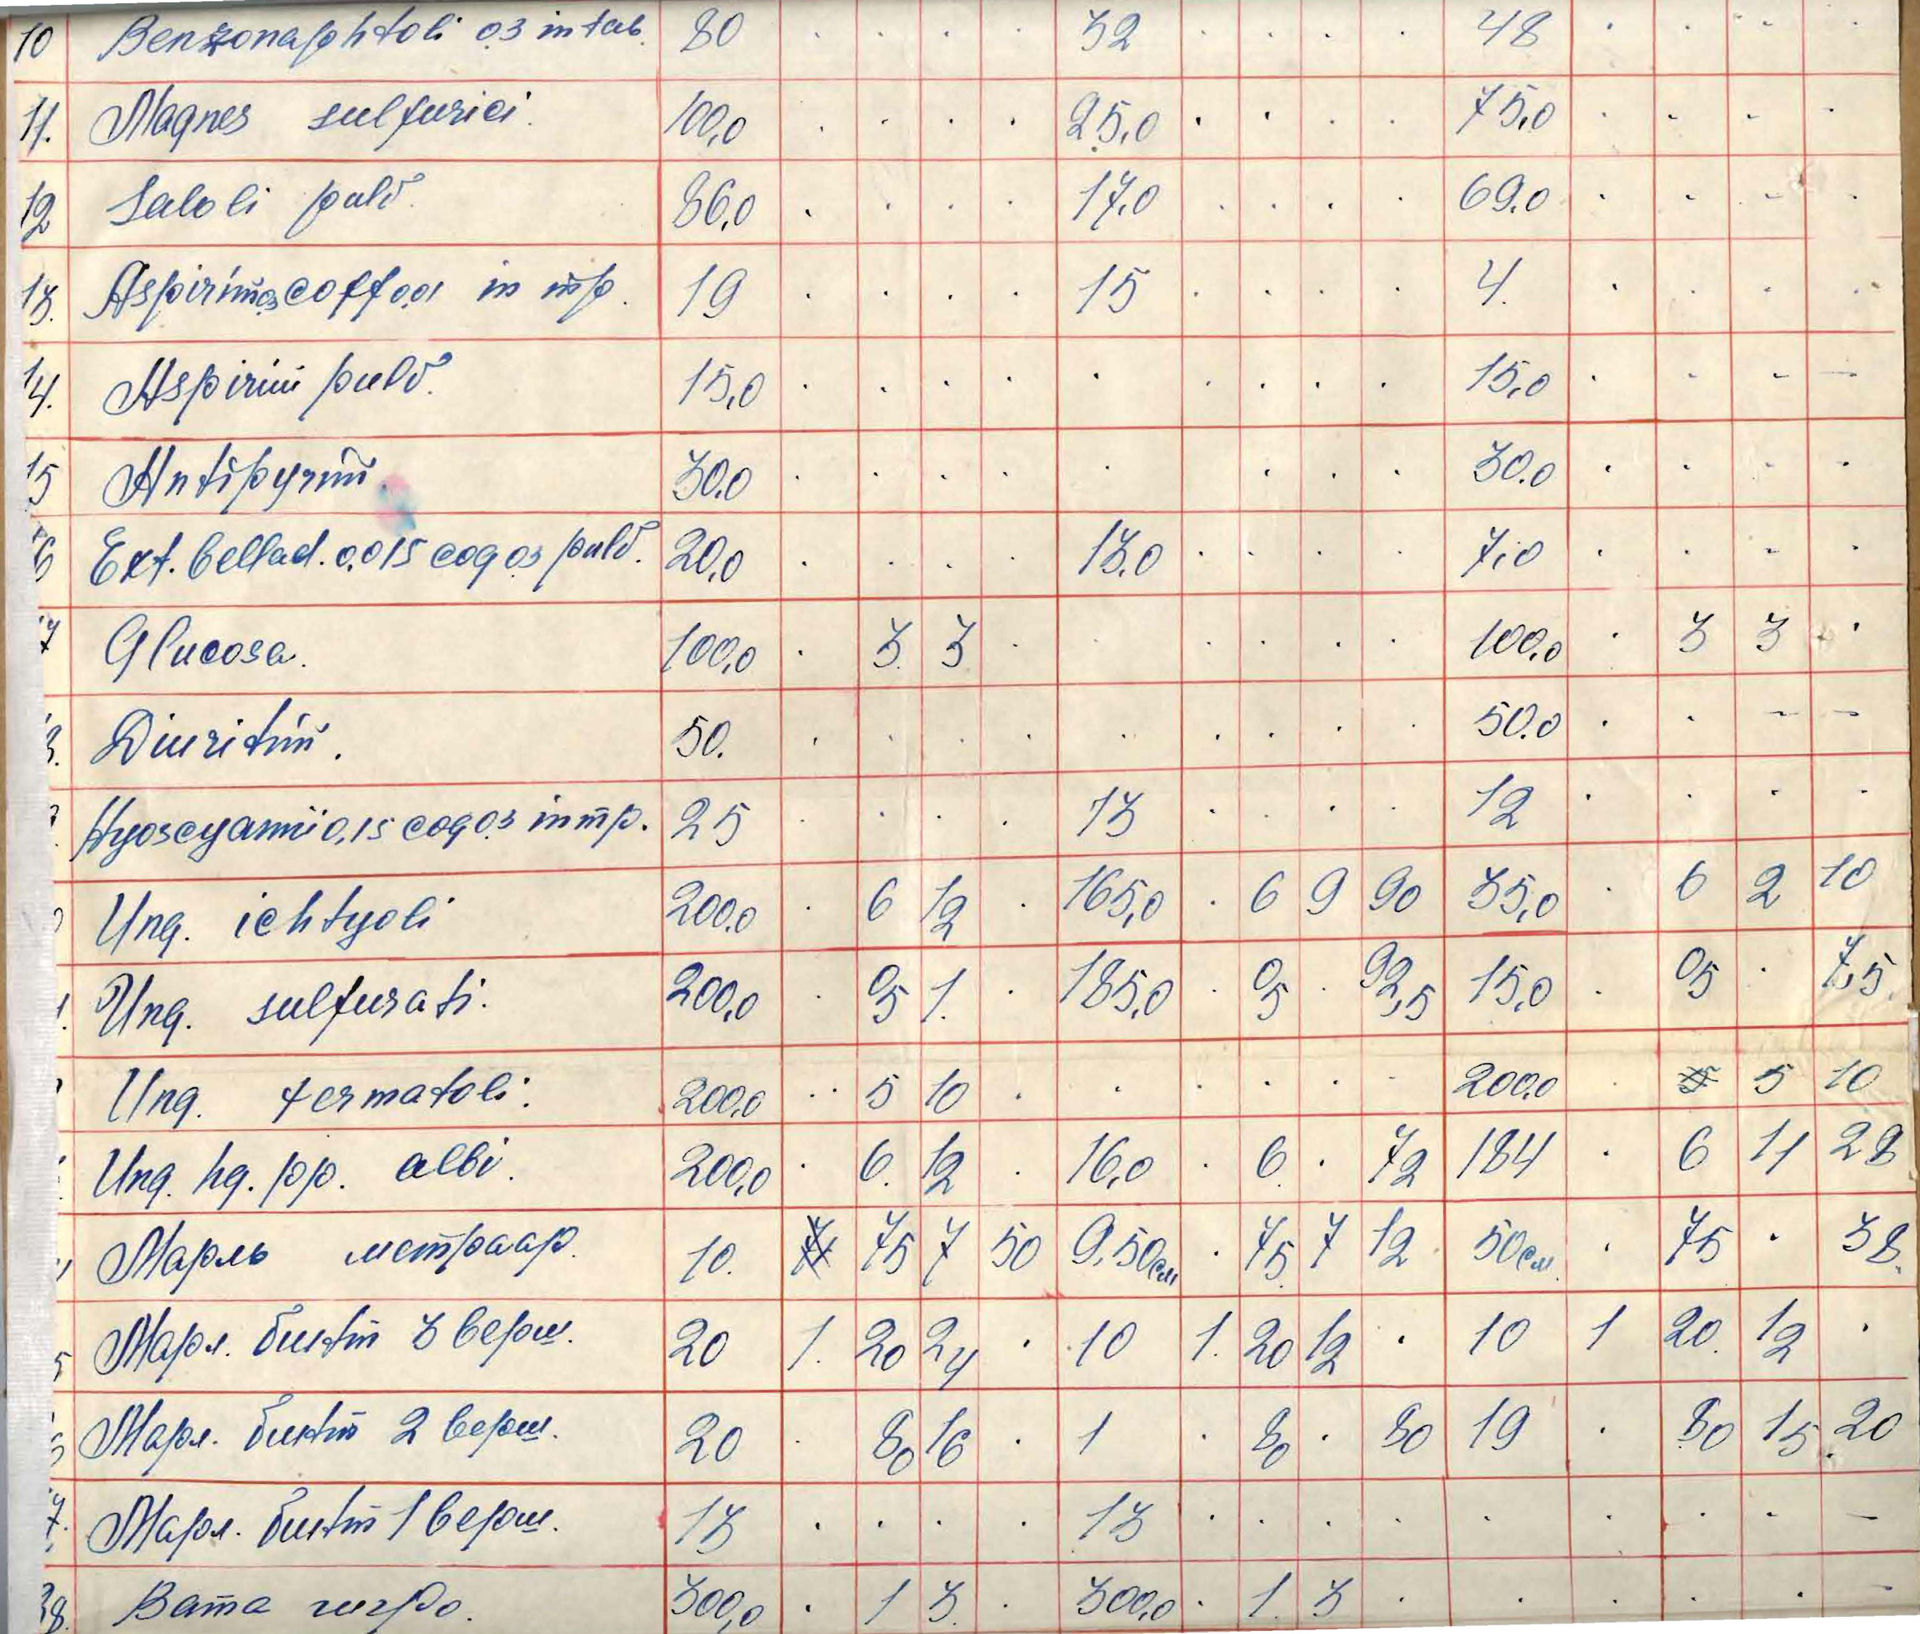 10 Benzonaphtoli 0.3 in tab. 80 . . . . 32 . . . . 48 . . - -
11. Magnes sulfurici. 100,0 . . . . 25,0 . . . . 75,0 . - - -
12 Saloli pulv. 86,0 . . . . 17,0 . . . . 69,0 . - - -
13. Aspirini 0,3 coff 0,01 in тр. 19 . . . . 15 . . . . 4. . . . .
14. Aspirini pulv. 15,0 . . . . . . . . . 15,0 . - - —
15 Antipyrini. 30.0 . . . . . . . . 30.0 . . - -
6 Ext. bellad. 0,015 coq 03 pulv. 20,0 . . . . 13,0 . . . . 7,0 . . - -
7 Glucosa. 100,0 . 3. 3 . . . . . . 100,0 . 3 3 .
Diuritini. 50. . . . . . . . . . 50.0 . . - —
Hyoscyamii 0,15 coq 0.3 in тр. 25 . . . . 13 . . . . 12 . . . .
Ung. ichtyoli 200.0 . 6 12 . 165,0 . 6 9 90 35,0 . 6 2 10
Ung. sulfurati. 200,0 . 05 1. . 185,0 . 05 . 92,5 15,0 . 05 . 7,5
Ung. xermatoli. 200,0 . 5 10 . . . . . . 200,0 . 5 5 10
Ung. hg. pp. albi. 200,0 . 6. 12 . 16,0 . 6. . 72 184 . 6 11 28
Марль 10. 7 75 7 50 9,50см . 75 7 12 50см. . 75 . 38.
5 Марл. бинтп 3 верш. 20 1. 20 24 . 10 1. 20 12 . 10 1 20. 12 .
Марл. бинтп 2 верш. 20 . 80 16 . 1 . 80 . 80 19 . 80 15 20
7. Марл. бинтп 1 верш. 13 . . . . 13 . . . . . . . . —
38. Вата гигро. 300,0 . 1 3. . 300,0 . 1. 3 . . . . . -